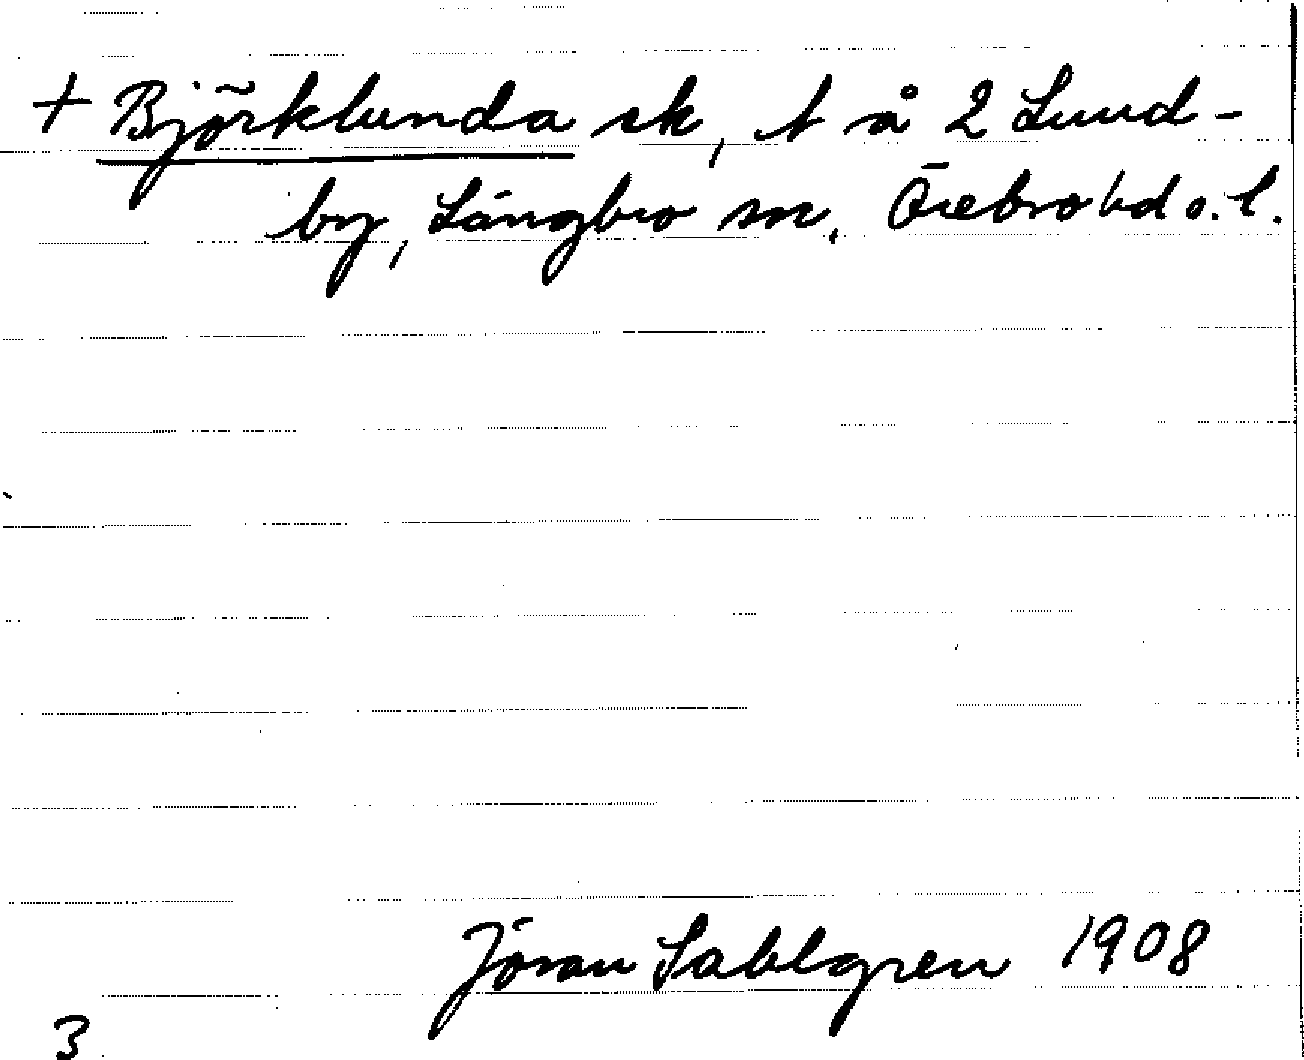 + Björklunda sk, t å 2 Lund-
by, Längbro sn, Örebro hd o. l.
Jöran Sahlgren 1908
3